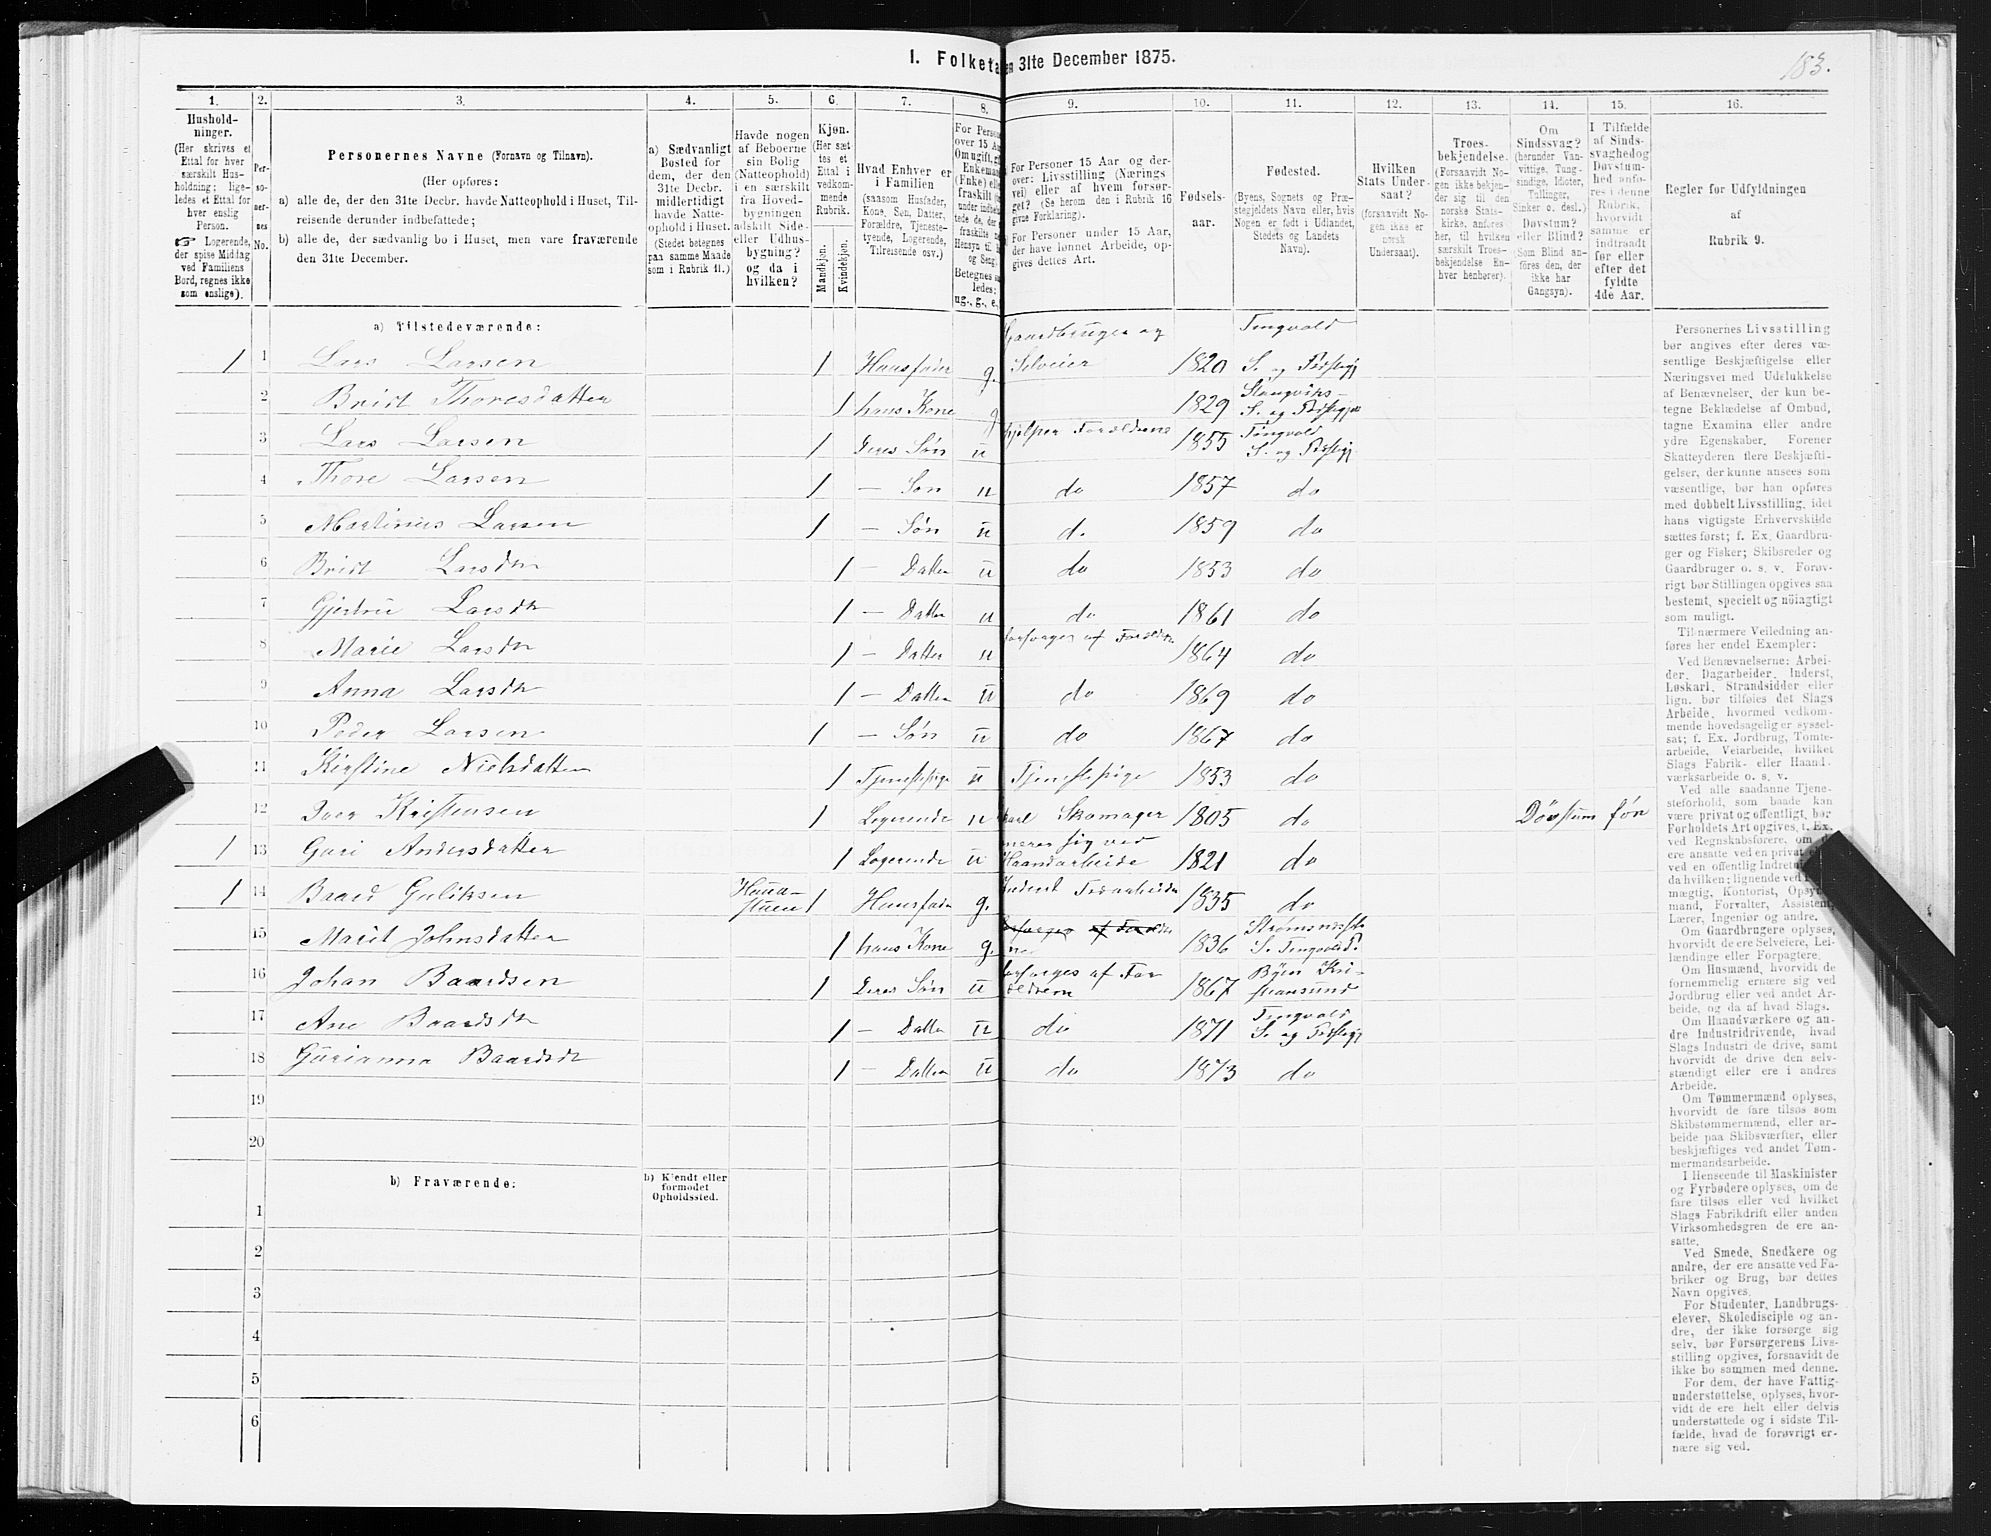 I. Folketa en 31te December 1875.
183.
1. 2. 3. 4. 5. 6. 7. 8. 9. 10. 11. 12. 13. 14. 15. 16.
Hushold-
ninger.
(Her skrives et
Ettal for hver
særskilt Hus-
holdning; lige-
ledes et Ettal for
hver enslig
Person.
☞ Logerende,
der spise Middag
ved Familiens
Bord, regnes ikke
som enslige).
Per-
so-
ner-
nes
No.
Personernes Navne (Fornavn og Tilnavn).
(Her opføres:
a) alle de, der den 31te Decbr. havde Natteophold i Huset, Til-
reisende derunder indbefattede;
b) alle de, der sædvanlig bo i Huset, men vare fraværende
den 31te December.
a) Sædvanligt
Bosted for
dem, der den
31te Decbr.
midlertidigt
havde Natte-
ophold i Huset.
(Stedet betegnes
paa samme Maade
som i Rubrik 11.)
Havde nogen
af Beboerne
sin Bolig
(Natteophold)
i en særskilt
fra Hoved-
bygningen
adskilt Side-
eller Udhus-
bygning?
og da i
hvilken?
Kjøn.
(Her sæt-
tes et
Ettal i
vedkom-
mende
Rubrik.
Mandkjøn.
Kvindekjøn.
Hvad Enhver er
i Familien
(saasom Husfader,
Kone, Søn, Datter,
Forældre, Tjeneste-
tyende, Logerende,
Tilreisende osv.)
For Perso
over 15 Aa
Om ugift, g
Enkema
(Enke) elle
fraskilt
under indbe
tede de, der
fraskilte
Hensyn til
og Seng.
Betegnes s
ledes:
ug., g., e.,
For Personer 15 Aar og der-
over: Livsstilling (Nærings
vei) eller af hvem forsør-
get? (Se herom den i Rubrik 16
givne Forklaring).
For Personer under 15 Aar,
der have lønnet Arbeide, op-
gives dettes Art.
Fødsels-
aar.
Fødested.
(Byens, Sognets og Præ-
stegjeldets Navn eller, hvis
Nogen er født i Udlandet,
Stedets og Landets
Navn).
Hvilken
Stats Under-
saat?
(forsaavidt No-
gen ikke er
norsk
Undersaat).
Troes-
bekjendelse.
(Forsaavidt No-
gen ikke bekjen-
der sig til den
norske Stats-
kirke, anføres
her, til hvilken
særskilt Troes-
bekjendelse En-
hver henhører).
Om
Sindssvag?
(herunder Van-
vittige, Tung-
sindige, Idioter,
Tullinger,
Sinker o. desl.)
Døvstum?
eller Blind?
(Som Blind an-
føres den, der
ikke har
Gangsyn).
I Tilfælde
af Sinds-
svaghed og
Døvstum-
hed anfø-
res i denne
Rubrik,
hvorvidt
samme er
indtraadt
før eller
efter det
fyldte
4de Aar.
Regler for Udfyldningen
af
Rubrik 9.
a) Tilstedeværende:
1 1 Lars Larsen 1 Huusfader g. Gaardbruger og Selveier 1820 Tingvold S. og Præstegj
2 Brit Thoresdatter 1 hans Kone g 1829 Stangviks- S. og Præstegj
3 Lars Larsen 1 Deres Søn u hjelper Forældrene 1855 Tingvold S. og Præstegj
4 Thore Larsen 1 — Søn u do 1857 do
5 Martinus Larsen 1 — Søn u d. 1859 do
6 Brit Larsdtr 1 — Datter u do 1853 do
7 Gjertru Larsdtr 1 — Datter u do 1861 do
8 Marie Larsdtr 1 — Datter u forsørges af Forældre 1864 do
9 Anna Larsdtr 1 — Datter u do 1869 do
10 Peder Larsen 1 — Søn u do 1867 do
11 Kirstine Nielsdatter 1 Tjenestepige u Tjenestepige 1853 do
12 Iver Kristensen 1 Logerende u Skomager 1805 do Døvstum før
1 13 Guri Andersdatter 1 Logerende u sig ved Haandarbeide 1821 do
1 14 Baard Guliksen Houd- stuen 1 Huusfader g. Inderst 1835 do
15 Marit Johnsdatter 1 hans Kone g. 1836 Strømsnæss S. Tingvold P.
16 Johan Baardsen 1 Deres Søn u forsørges af For ældrene 1867 Byen Kri- stiansund
17 Ane Baardsdtr 1 — Datter u do 1871 Tingvold S. og Præstegj
18 Gurianna Baardsdtr 1 — Datter u do 1873 do
19
20
b) Fraværende:
b) Kjendt eller
formodet
Opholdssted.
1
2
3
4
5
6
Personernes Livsstilling
bør angives efter deres væ-
sentlige Beskjæftigelse eller
Næringsvei med Udelukkelse
af Benævnelser, der kun be-
tegne Beklædelse af Ombud,
tagne Examina eller andre
ydre Egenskaber. Forener
Skatteyderen flere Beskjæfti-
gelser, der kunne ansees som
væsentlige, bør han opføres
med dobbelt Livsstilling, idet
hans vigtigste Erhvervskilde
sættes først; f. Ex. Gaardbru-
ger og Fisker; Skibsreder og
Gaardbruger o. s. v. Forøv-
rigt bør Stillingen opgives saa
bestemt, specielt og nøiagtigt
som muligt.
Til nærmere Veiledning an-
føres her endel Exempler:
Ved Benævnelserne: Arbei-
der, Dagarbeider, Inderst,
Løskarl, Strandsidder eller
lign. bør tilføies det Slags
Arbeide, hvormed vedkom-
mende hovedsagelig er syssel-
sat; f. Ex. Jordbrug, Tomte-
arbeide, Veiarbeide, hvilket
Slags Fabrik- eller Haand-
værksarbeide o. s. v.
Ved alle saadanne Tjene-
steforhold, som baade kan
være privat og offentligt, bør
Forholdets Art opgives, f. Ex.
ved Regnskabsførere, om d
ere ansatte ved en privat
ved en offentlig Indretn
da hvilken; lignende ved
mægtig, Kontorist, Opsy
mand, Forvalter, Assistent,
Lærer, Ingeniør og andre.
Om Gaardbrugere oplyses,
hvorvidt de ere Selveiere, Lei-
lændinge eller Forpagtere.
Om Husmænd, hvorvidt de
fornemmelig ernære sig ved
Jordbrug eller ved andet Ar-
beide, og da af hvad Slags.
Om Haandværkere og an-
dre Industridrivende, hvad
Slags Industri de drive, samt
hvorvidt de drive den selv-
stændigt eller ere i andres
Arbeide.
Om Tømmermænd oplyses,
hvorvidt de fare tilsøs som
Skibstømmermænd, eller ar-
beide paa Skibsværfter, eller
beskjæftiges ved andet Tøm-
mermandsarbeide.
I Henseende til Maskinister
og Fyrbødere oplyses, om de
fare tilsøs eller ved hvilket
Slags Fabrikdrift eller anden
Virksomhedsgren de ere an-
satte.
Ved Smede, Snedkere og
andre, der ere ansatte ved Fa-
briker og Brug, bør dettes
Navn opgives.
For Studenter, Landbrugs-
elever, Skoledisciple og an-
dre, der ikke forsørge sig
selv, bør Forsørgerens Livs-
stilling opgives, forsaavidt de
ikke bo sammen med denne.
For dem, der have Fattig-
understøttelse, oplyses, hvor-
vidt de ere helt eller delvis
understøttede og i sidste Til-
fælde, hvad de forøvrigt er-
nære sig ved.